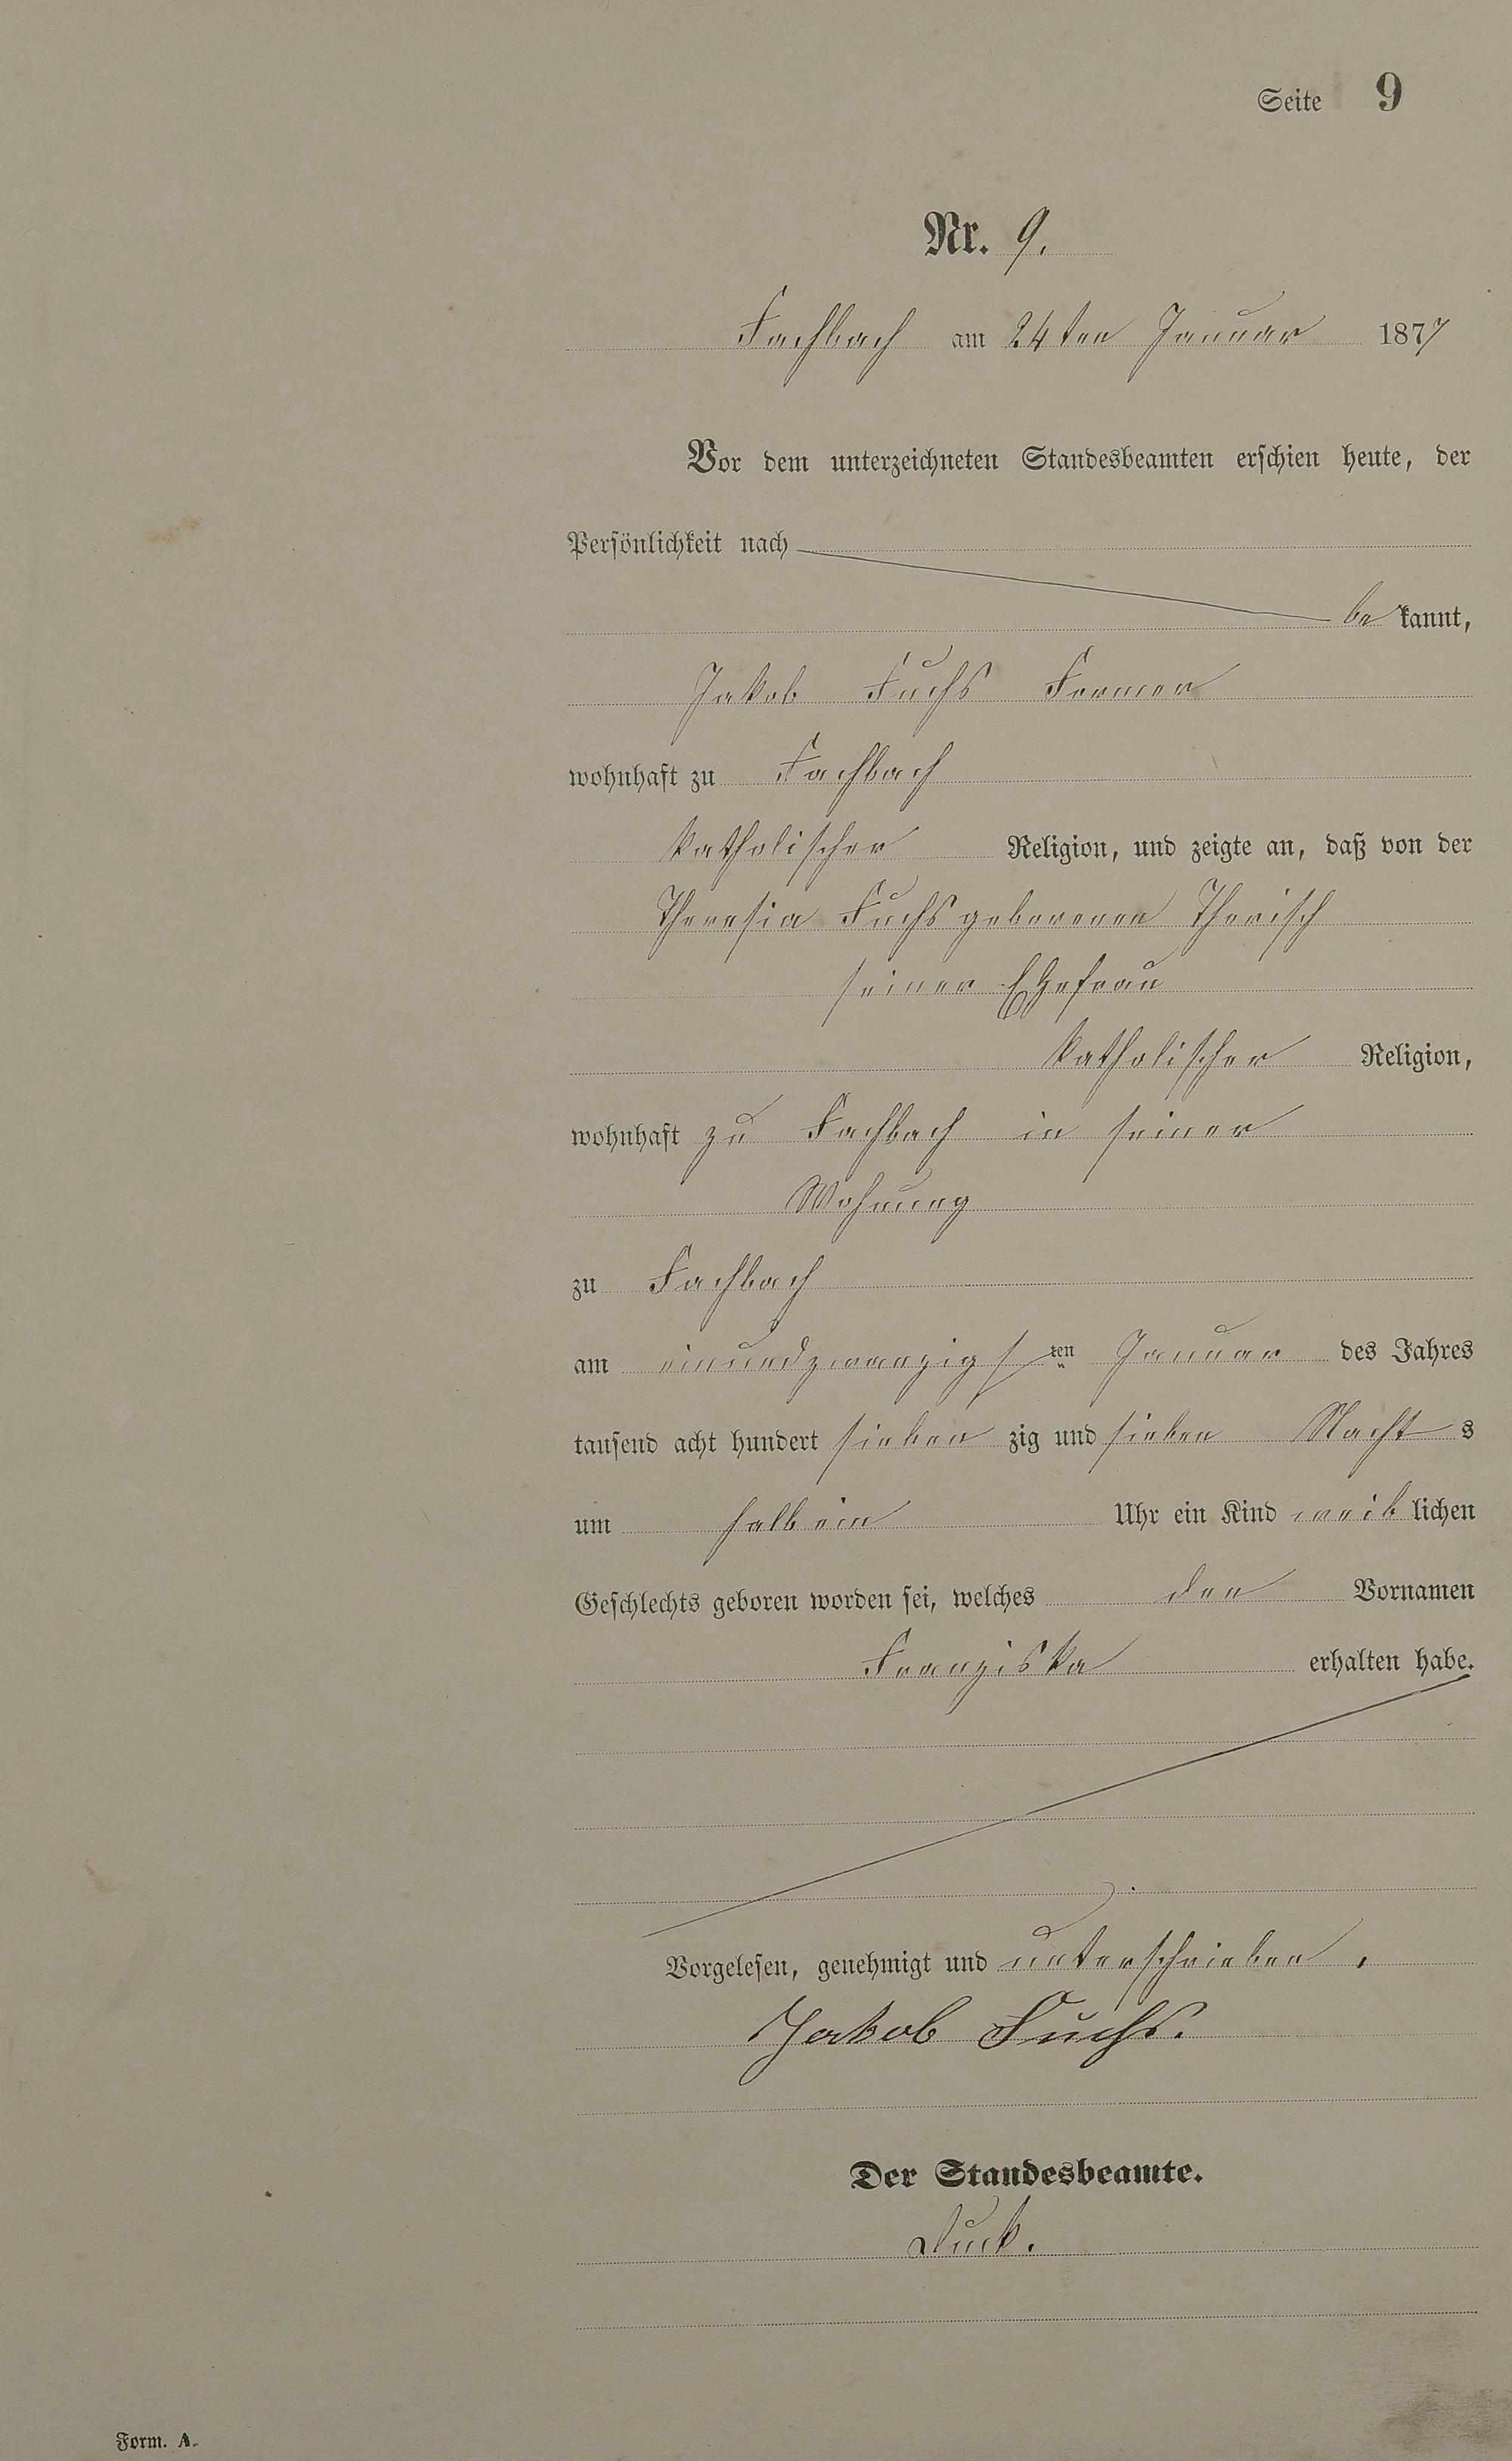 Seite 9
Nr. 9.
Fachbach am 24ten Januar 1877
Vor dem unterzeichneten Standesbeamten erschien heute, der
Persönlichkeit nach
be kannt,
Jakob Fuchs Former
wohnhaft zu Fachbach
katholischer Religion, und zeigte an, daß von der
Theresia Fuchs geborenen Thorisch
seiner Ehefrau
katholischer Religion,
wohnhaft zu Fachbach in seiner
Wohnung
zu Fachbach
am einundzwanzigsten Januar des Jahres
tausend acht hundert sieben zig und sieben Nacht s
um halb ein Uhr ein Kind weib lichen
Geschlechts geboren worden sei, welches den Vornamen
Franziska erhalten habe.
Vorgelesen, genehmigt und unterschrieben.
Jakob Fuchs.
Der Standesbeamte.
Duck.
Form. A.